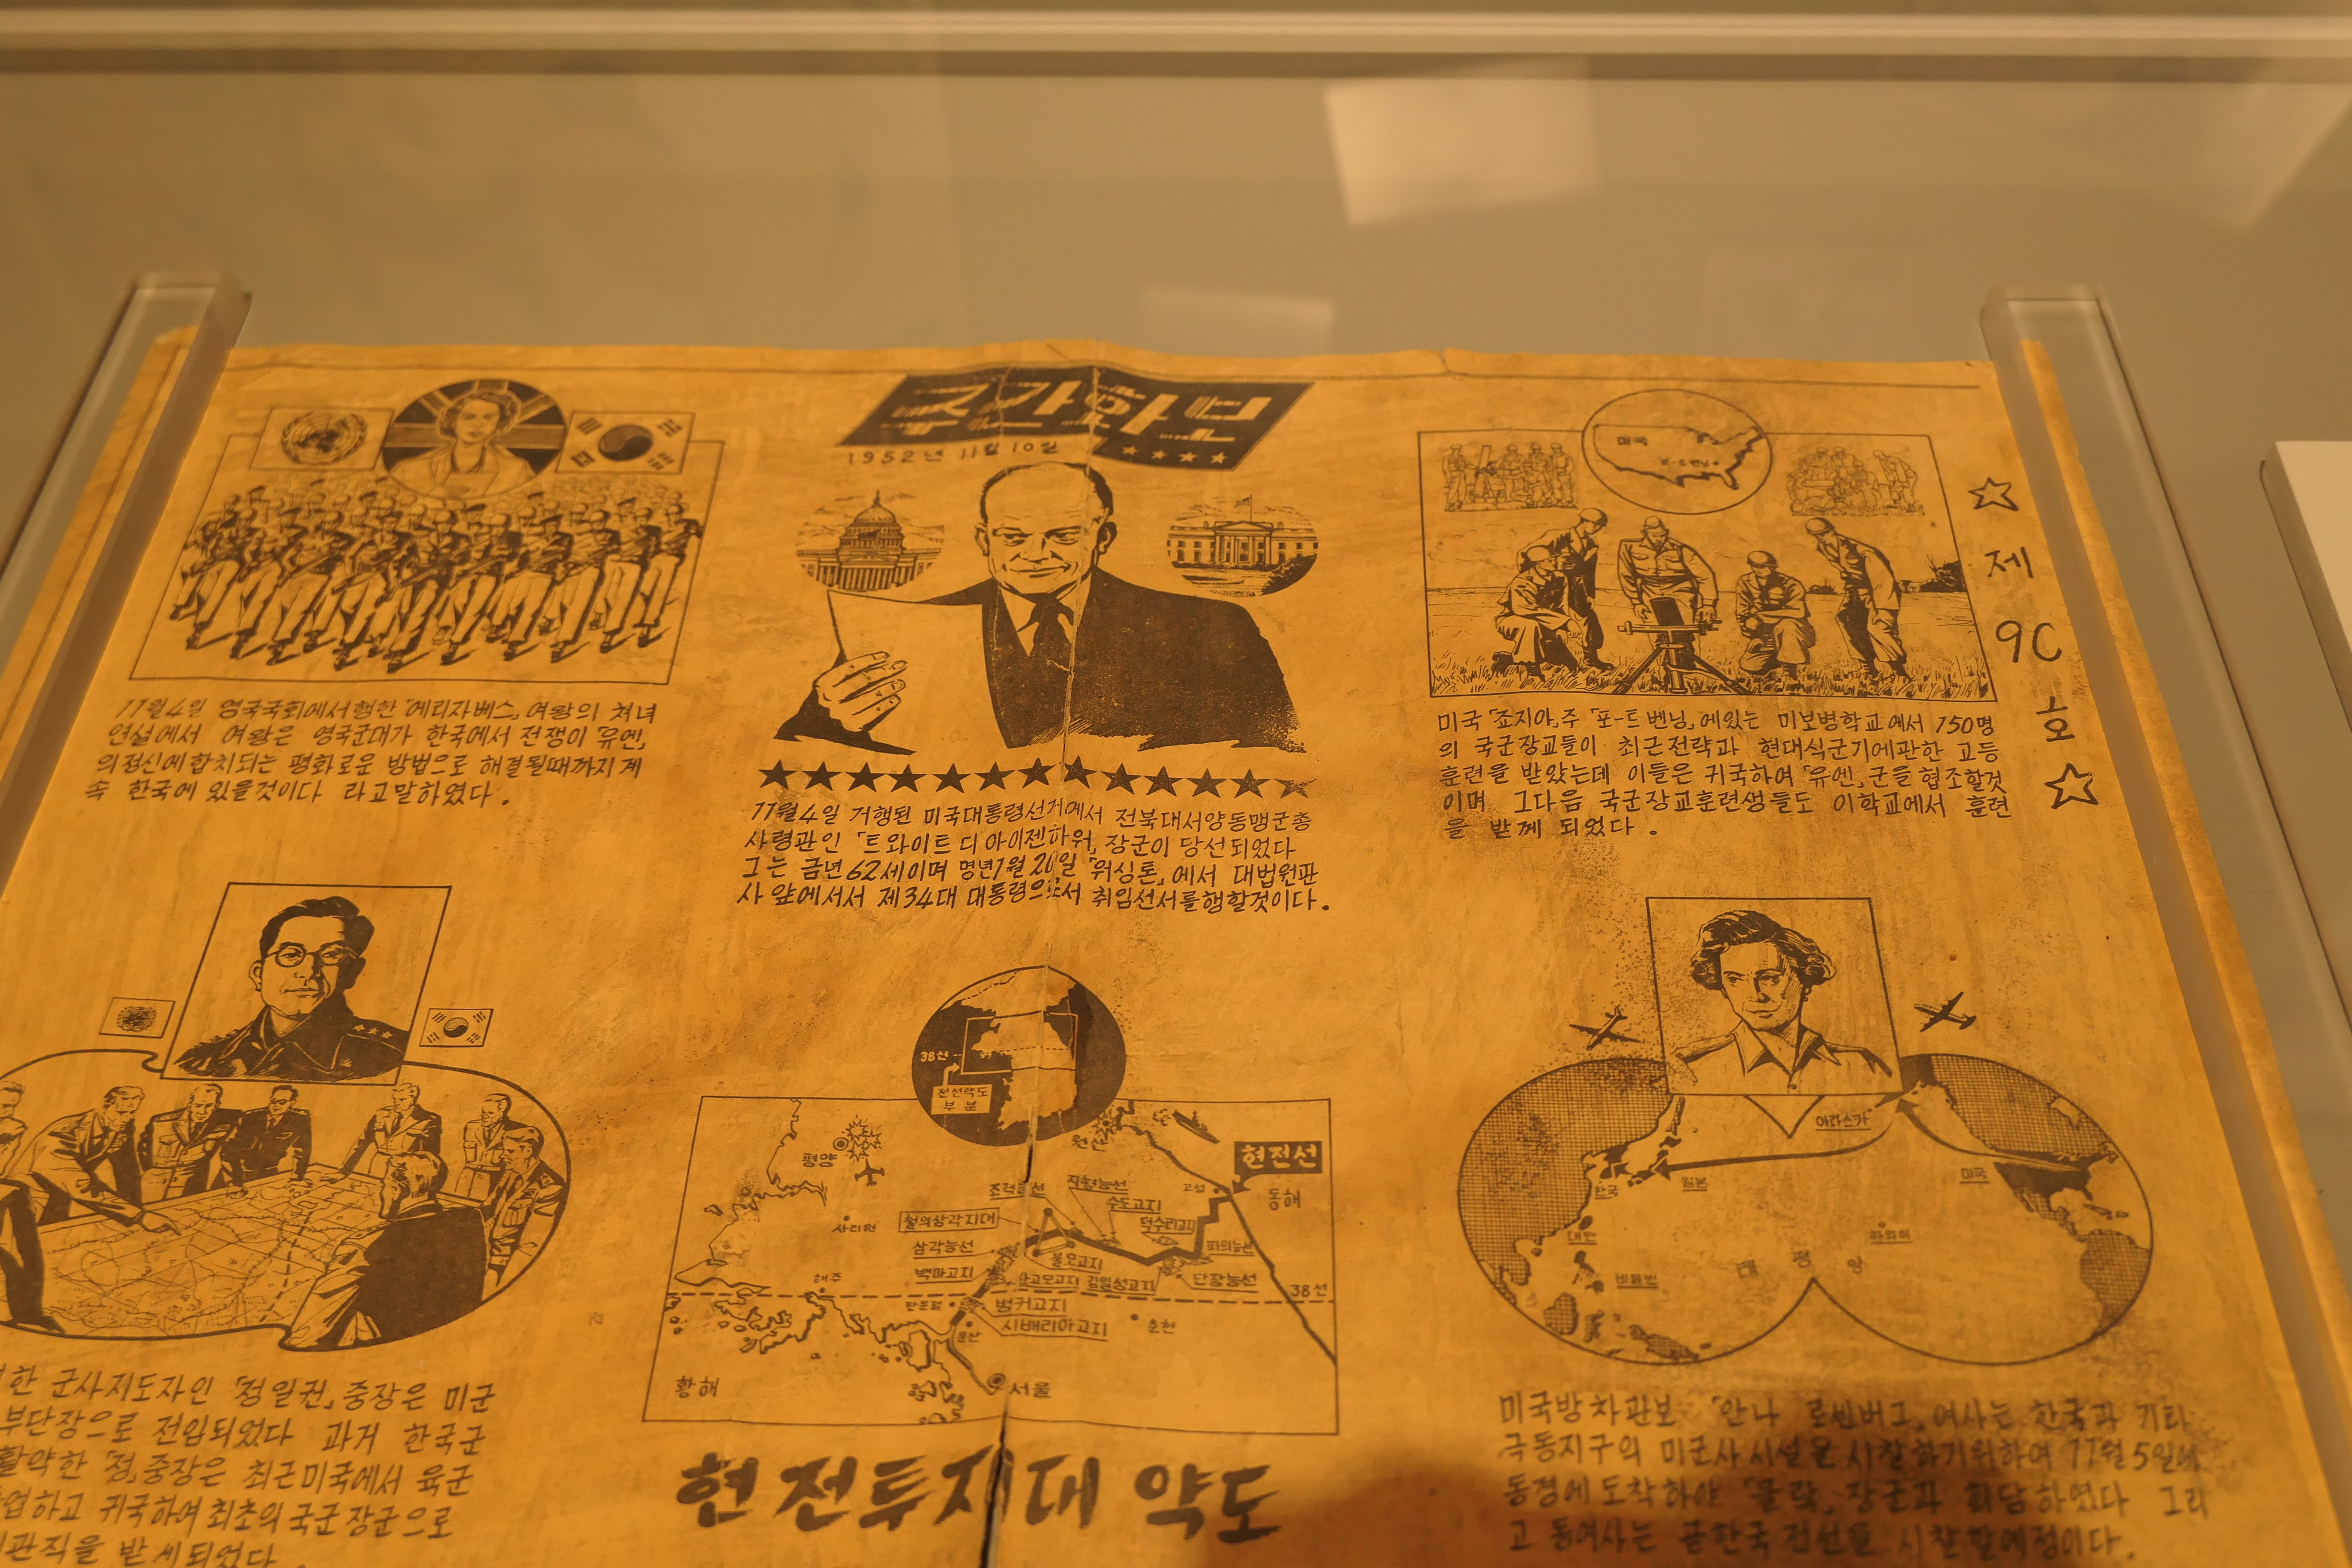 주간화보
1952년 11월 10일
11월4일 영국국회에서행한「에리자베스」여왕의 처녀
연설에서 여왕은 영국군대가 한국에서 전쟁이「유엔」
의정신에합치되는 평화로운 방법으로 해결될때까지계
속 한국에 있을것이다 라고말하였다.
11월4일 거행된 미국대통령선거에서 전북대서양동맹군총
사령관인 「트와이트 디 아이젠하워」장군이 당선되었다
그는 금년62세이며 명년1월 20일 「워싱톤」에서 대법원판
사 앞에서서 제34대 대통령으로서 취임선서를행할것이다.
미국
포-트 벤닝
제
90
호
미국「죠지아」주「포-트 벤닝」에있는 미보병학교에서 150명
의 국군장교들이 최근전략과 현대식군기에관한 고등
훈련을 받았는데 이들은 귀국하여「유엔」군을 협조할것
이며 그다음 국군장교훈련생들도 이학교에서 훈련
을 받께 되었다.
한 군사지도자인「정일권」중장은 미군
부단장으로 전입되었다 과거 한국군
활약한「정」중장은 최근미국에서 육군
업하고 귀국하여최초의국군장군으로
관직을 받게되었다.
38선
전선약도
부분
평양
원산
현전선
동해
고성
사리원
조력능선
지형능선
수도고지
덕수리고지
철의삼각지대
삼각능선
백마고지
불모고지
김일성고지
단장능선
해주
38선
판문점
벙커고지
시베리아고지
문산
춘천
황해
서울
현전투지대 약도
아라스카
한국
일본
미국
대만
하와이
비율빈
태평양
미국방차관보 「안나 로센버그」여사는 한국과 기타
극동지구의 미군사시설을시찰하기위하여 11월5일에
동경에도착하야 「클락」장군과 회담하였다 그리
고 동여사는 곧한국전선을 시찰할예정이다.